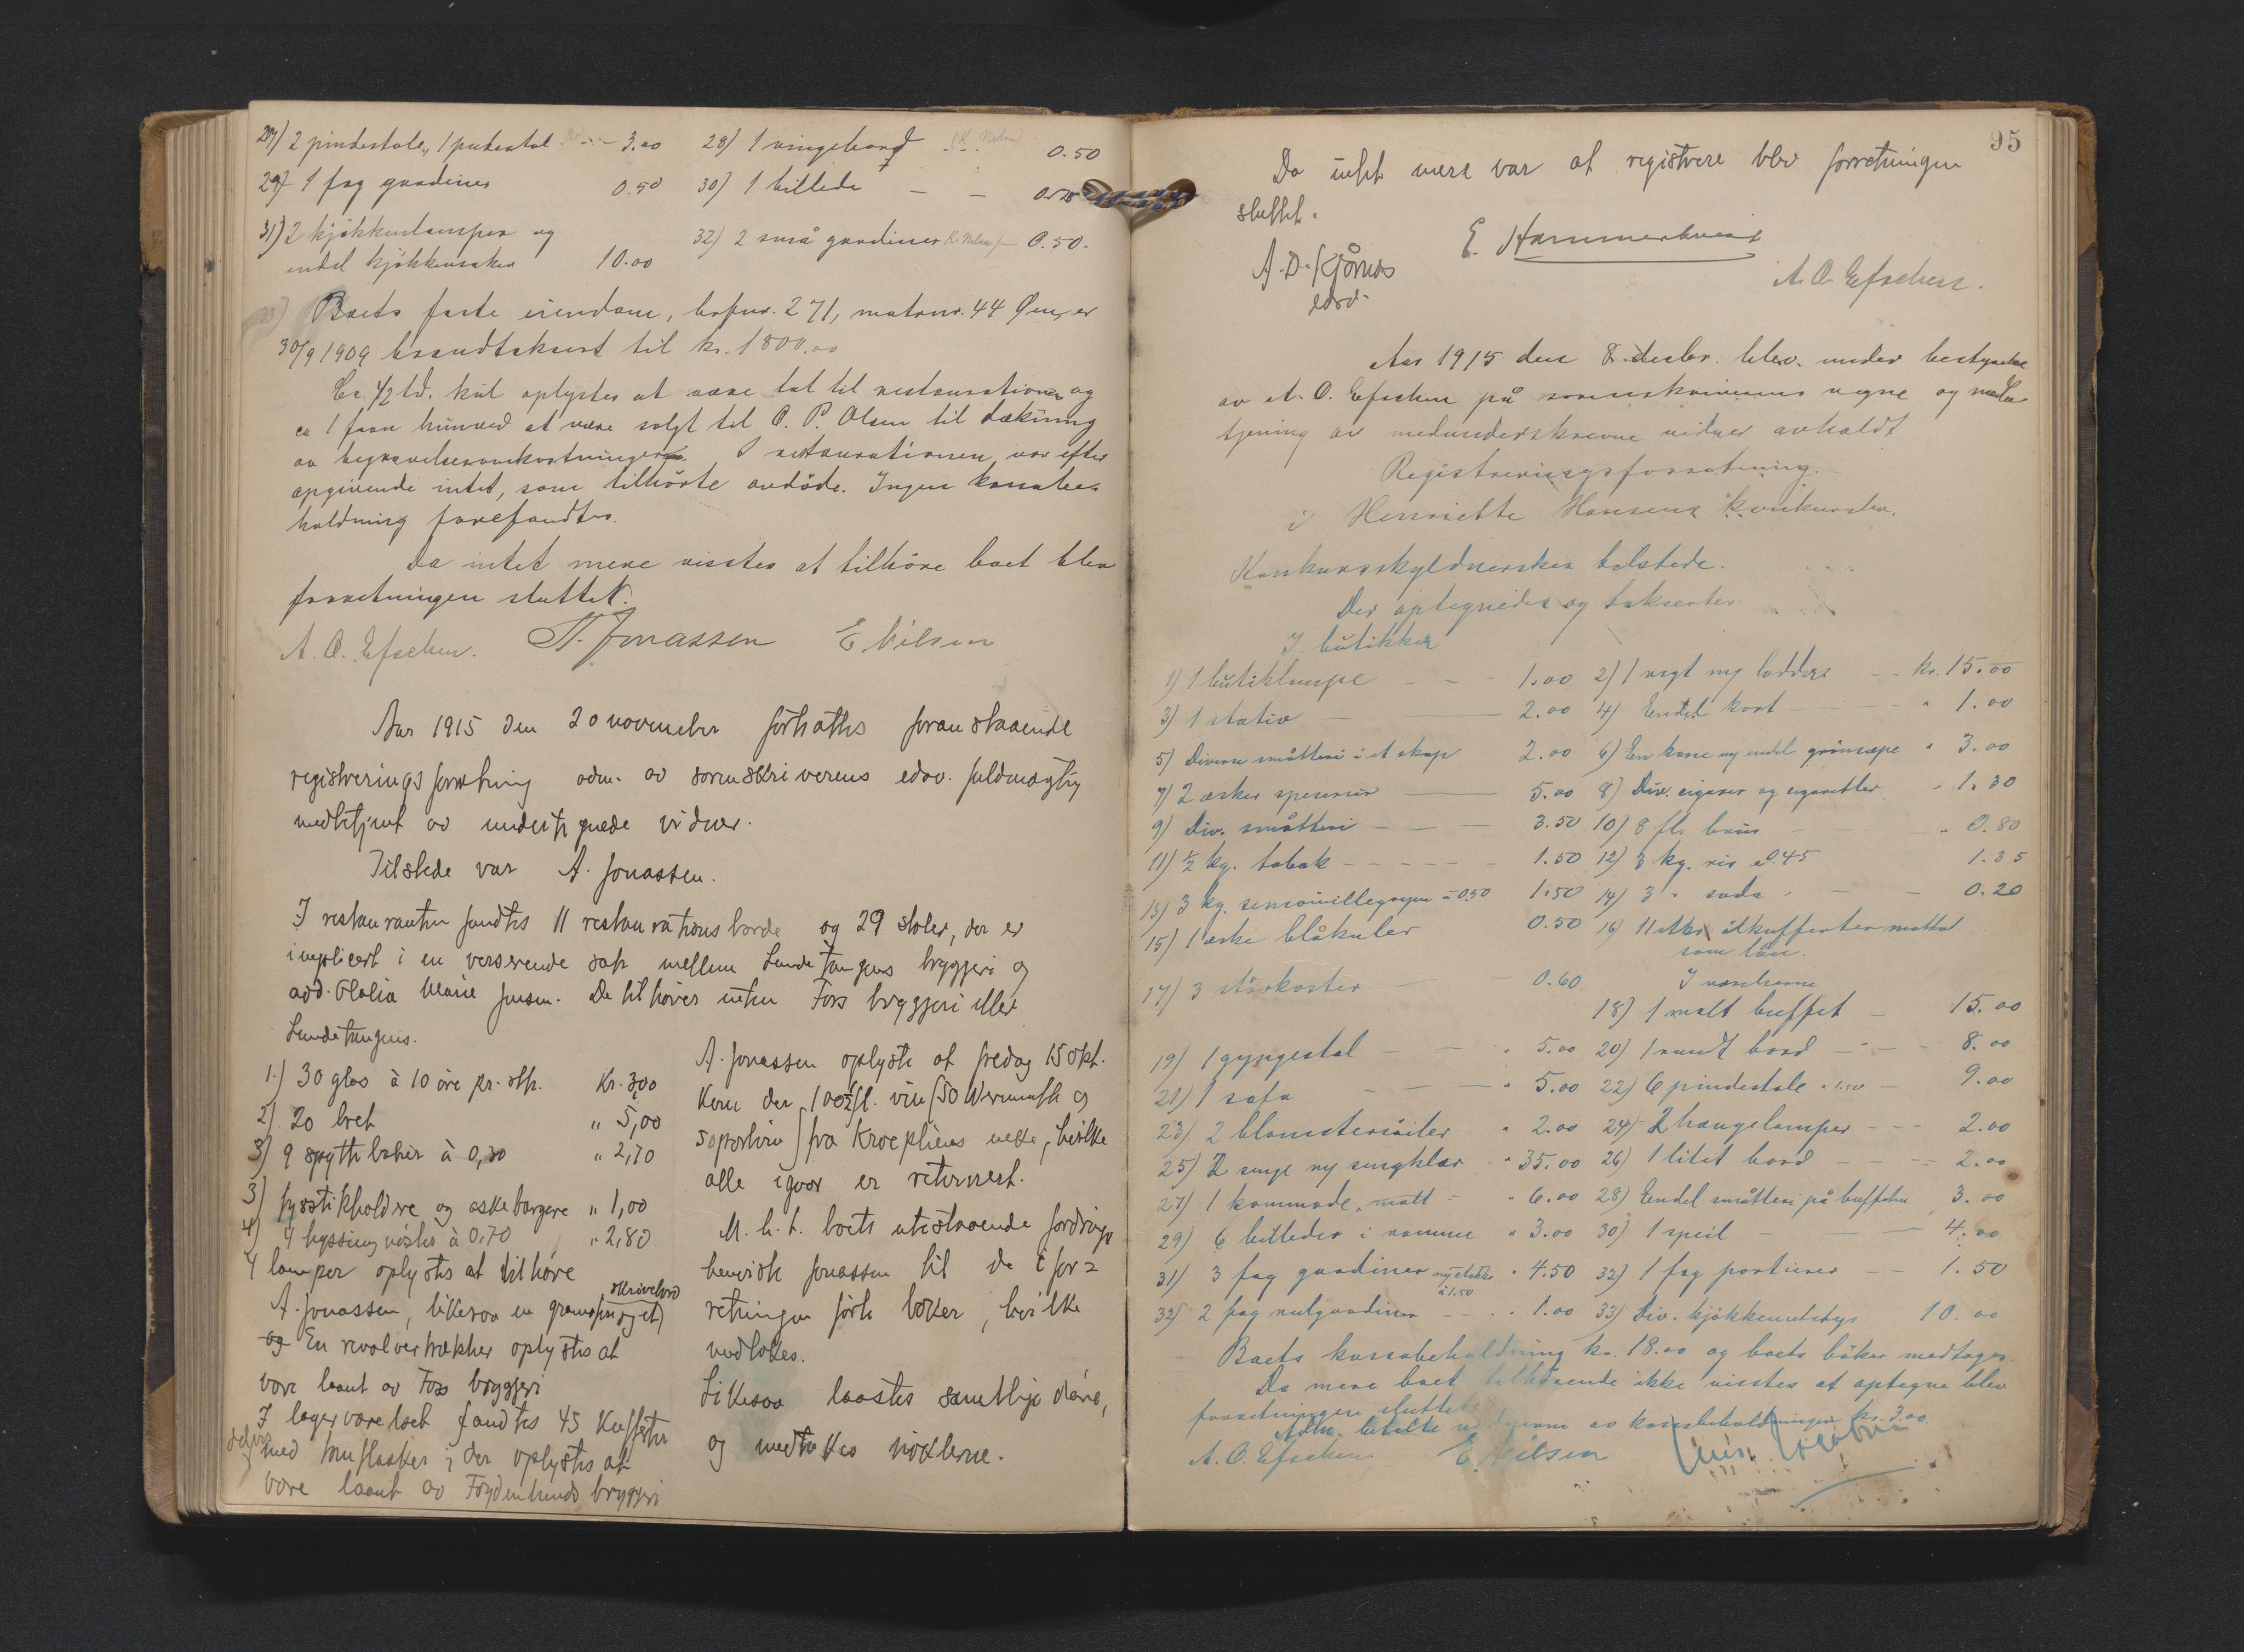 27) 2 pindestole, 1 pudestol 3.00 28) 1 vingebord (K. Nelsen) 0.50
29) 1 fag gardiner 0.50 30) 1 billede - - 0.25
31) 2 kjökkenlamper og
endel kjökkensaker 10.00 32) 2 små gardiner (K. Nelsen) - 0.50.
33) Boets faste eiendom, brfnr. 271, matrnr. 44 Øen, er
30/9 1909 brandtaksert til kr. 1800.00
Ca. 1/2 td. kul oplystes at være tat til restaurationen og
ca 1 favn hunved at være solgt til O. P. Olsen til dækning
av begravelsesomkostninger. I restaurationen var efter
opgivende intet, som tilhörte avdöde. Ingen kassabe-
holdning forefandtes.
Da intet mere visstes at tilhöre boet blev
forretningen sluttet.
A. O. Efschen. A. Jonassen E Nilsen
Aar 1915 den 20 november fortsattes foranstaaende
registreringsforretning adm. av sorenskriverens edsv. fuldmægtig
medbetjent av undertegnede vidner.
Tilstede var A. Jonassen.
I restauranten fandtes 11 restaurationsborde og 29 stoler, der er
implicert i en verserende sak mellem Lundetangens bryggeri og
avd. Olalia Marie Jensen. De tilhører enten Foss bryggeri eller
Lundetangens.
1.) 30 glas à 10 öre pr. stk. Kr. 3,00
2) 20 bret " 5,00
3) 9 spyttebakker à 0,30 " 2,70
3) fyrstikholdere og askebægere " 1,00
4) 4 à 0,70 " 2,80
4 lamper oplystes at tilhøre
A. Jonassen, likesaa en gramofon og et skrivebord)
og En revolvertrækker oplystes at
være laant av Foss bryggeri
I lagerværelset fandtes 45 Kufferter
delvis med tomflasker, der oplystes at
være laant av Frydenlunds bryggeri
A. Jonassen oplyste at fredag 15 okt.
kom der 100 1/2 fl. vin (50 Vermuth og
50 portvin) fra Kroepliens enke, hvilke
alle igaar er returnert.
M. h. t. boets utestaaende fordringer
henviste Jonassen til de i for-
retningen førte bøker, hvilke
vedlokes.
Likesaa laastes samtlige døre,
og medtokes nøklerne.
95
Da intet mere var at registrere blev forretningen
sluttet.
E. Hammerkvist
A. D. Kjårnes
edsv.
A. O. Efschen.
Aar 1915 den 8. desbr. blev under bestyrelse
av A. O. Efschen på sorenskriverens vegne og med
tjening av medunderskrevne vidner avholdt
Registreringsforretning.
i Henriette Hansens konkursbo.
Konkursskyldnersken tilstede.
Der optegnedes og taksertes
I butikken
1) 1 butiklampe - - - 1.00 2) 1 vegt og lodder - - kr. 15.00
3) 1 stativ - 2.00 4) Endel kort - - - " 1.00
5) Diverse småtteri i et skap 2.00 6) En kasse og endel grönsæpe " 3.00
7) 2 æsker speserier - 5.00 8) Div. cigarer og cigaretter " 1.30
9) Div. småtteri - - - 3.50 10) 8 fl. brus " 0.80
11) 1/2 kg. tobak - - - - - 1.50 12) 3 kg. ris à 0.45 1.35
13) 3 kg. semouillegryn à 0.50 1.50 14) 3 " soda - - 0.20
15) 1 æske blåkuler 0.50 16) 11 ölkufferter mottat
som lån.
17) 3 - 0.60 I værelserne
18) 1 malt buffet - 15.00
19) 1 gyngestol - - " 5.00 20) 1 rundt bord - - - 8.00
21) 1 sofa - - - " 5.00 22) 6 pindestole à 1.50 - 9.00
23) 2 blomstersöiler " 2.00 24) 2 hængelamper - - - 2.00
25) 2 senge og sengklær " 35.00 26) 1 litet bord - - 2.00
27) 1 kommode, malt - " 6.00 28) Endel småtteri på buffeten 3.00
29) 6 billeder i ramme " 3.00 30) 1 speil - - - 4.00
31) 3 fag gardiner à 1.50 " 4.50 32) 1 fag portierer - - 1.50
32) 2 fag rulgardiner - - " 1.00 33) Div. kjökkenutstyr 10.00
Boets kassabeholdning kr. 18.00 og boets böker medtages.
Da mere boet tilhörende ikke visstes at optegne blev
forretningen sluttet
Adm. betalte av kassabeholdningen kr. 3.00.
A. O. Efschen E. Nilsen